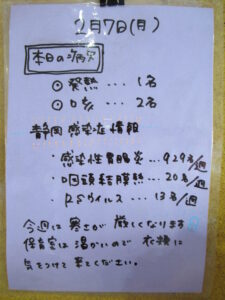 2月7日(月)
本日の病欠
◎発熱…1名
◎口炎…2名
静岡 感染症情報
・感染性胃腸炎…929名/週
・咽頭結膜熱…20名/週
・RSウイルス…13名/週
今週は寒さが厳しくなります
保育室は温かいので 衣類に
気をつけて来てください。